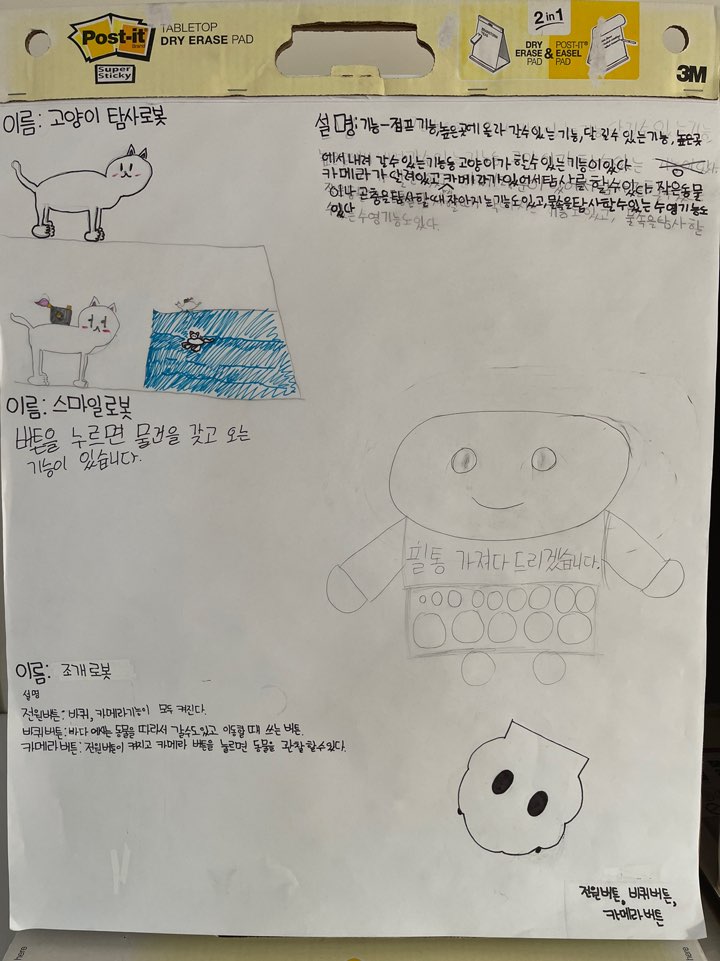 Post-it
brand
Super
Sticky
TABLETOP
DRY ERASE PAD
2 in 1
DRY
ERASE
PAD
&
POST-IT®
EASEL
PAD
3M
이름: 고양이 탐사로봇
설명: 기능-점프 기능, 높은곳에 올라 갈수있는 기능, 달릴수 있는 기능, 높은곳
에서 내려 갈수있는 기능등 고양이가 할수있는 기능이 있다
카메라가 달려있고 카메라가 있어서 탐사를 할수있다 작은동물
이나 곤충을 탐사할때 작아지는 기능도 있고, 물속을 탐사 할수있는 수영기능도
있다
이름: 스마일로봇
버튼을 누르면 물건을 갖고 오는
기능이 있습니다.
필통 가져다 드리겠습니다.
이름: 조개로봇
설명
전원버튼: 바퀴, 카메라기능이 모두 켜진다.
바퀴버튼: 바다 에있는 동물을 따라서 갈수도있고 이동할 때 쓰는 버튼.
카메라 버튼: 전원버튼이 켜지고 카메라 버튼을 눌르면 동물을 관찰 할수있다.
전원버튼, 바퀴버튼,
카메라버튼